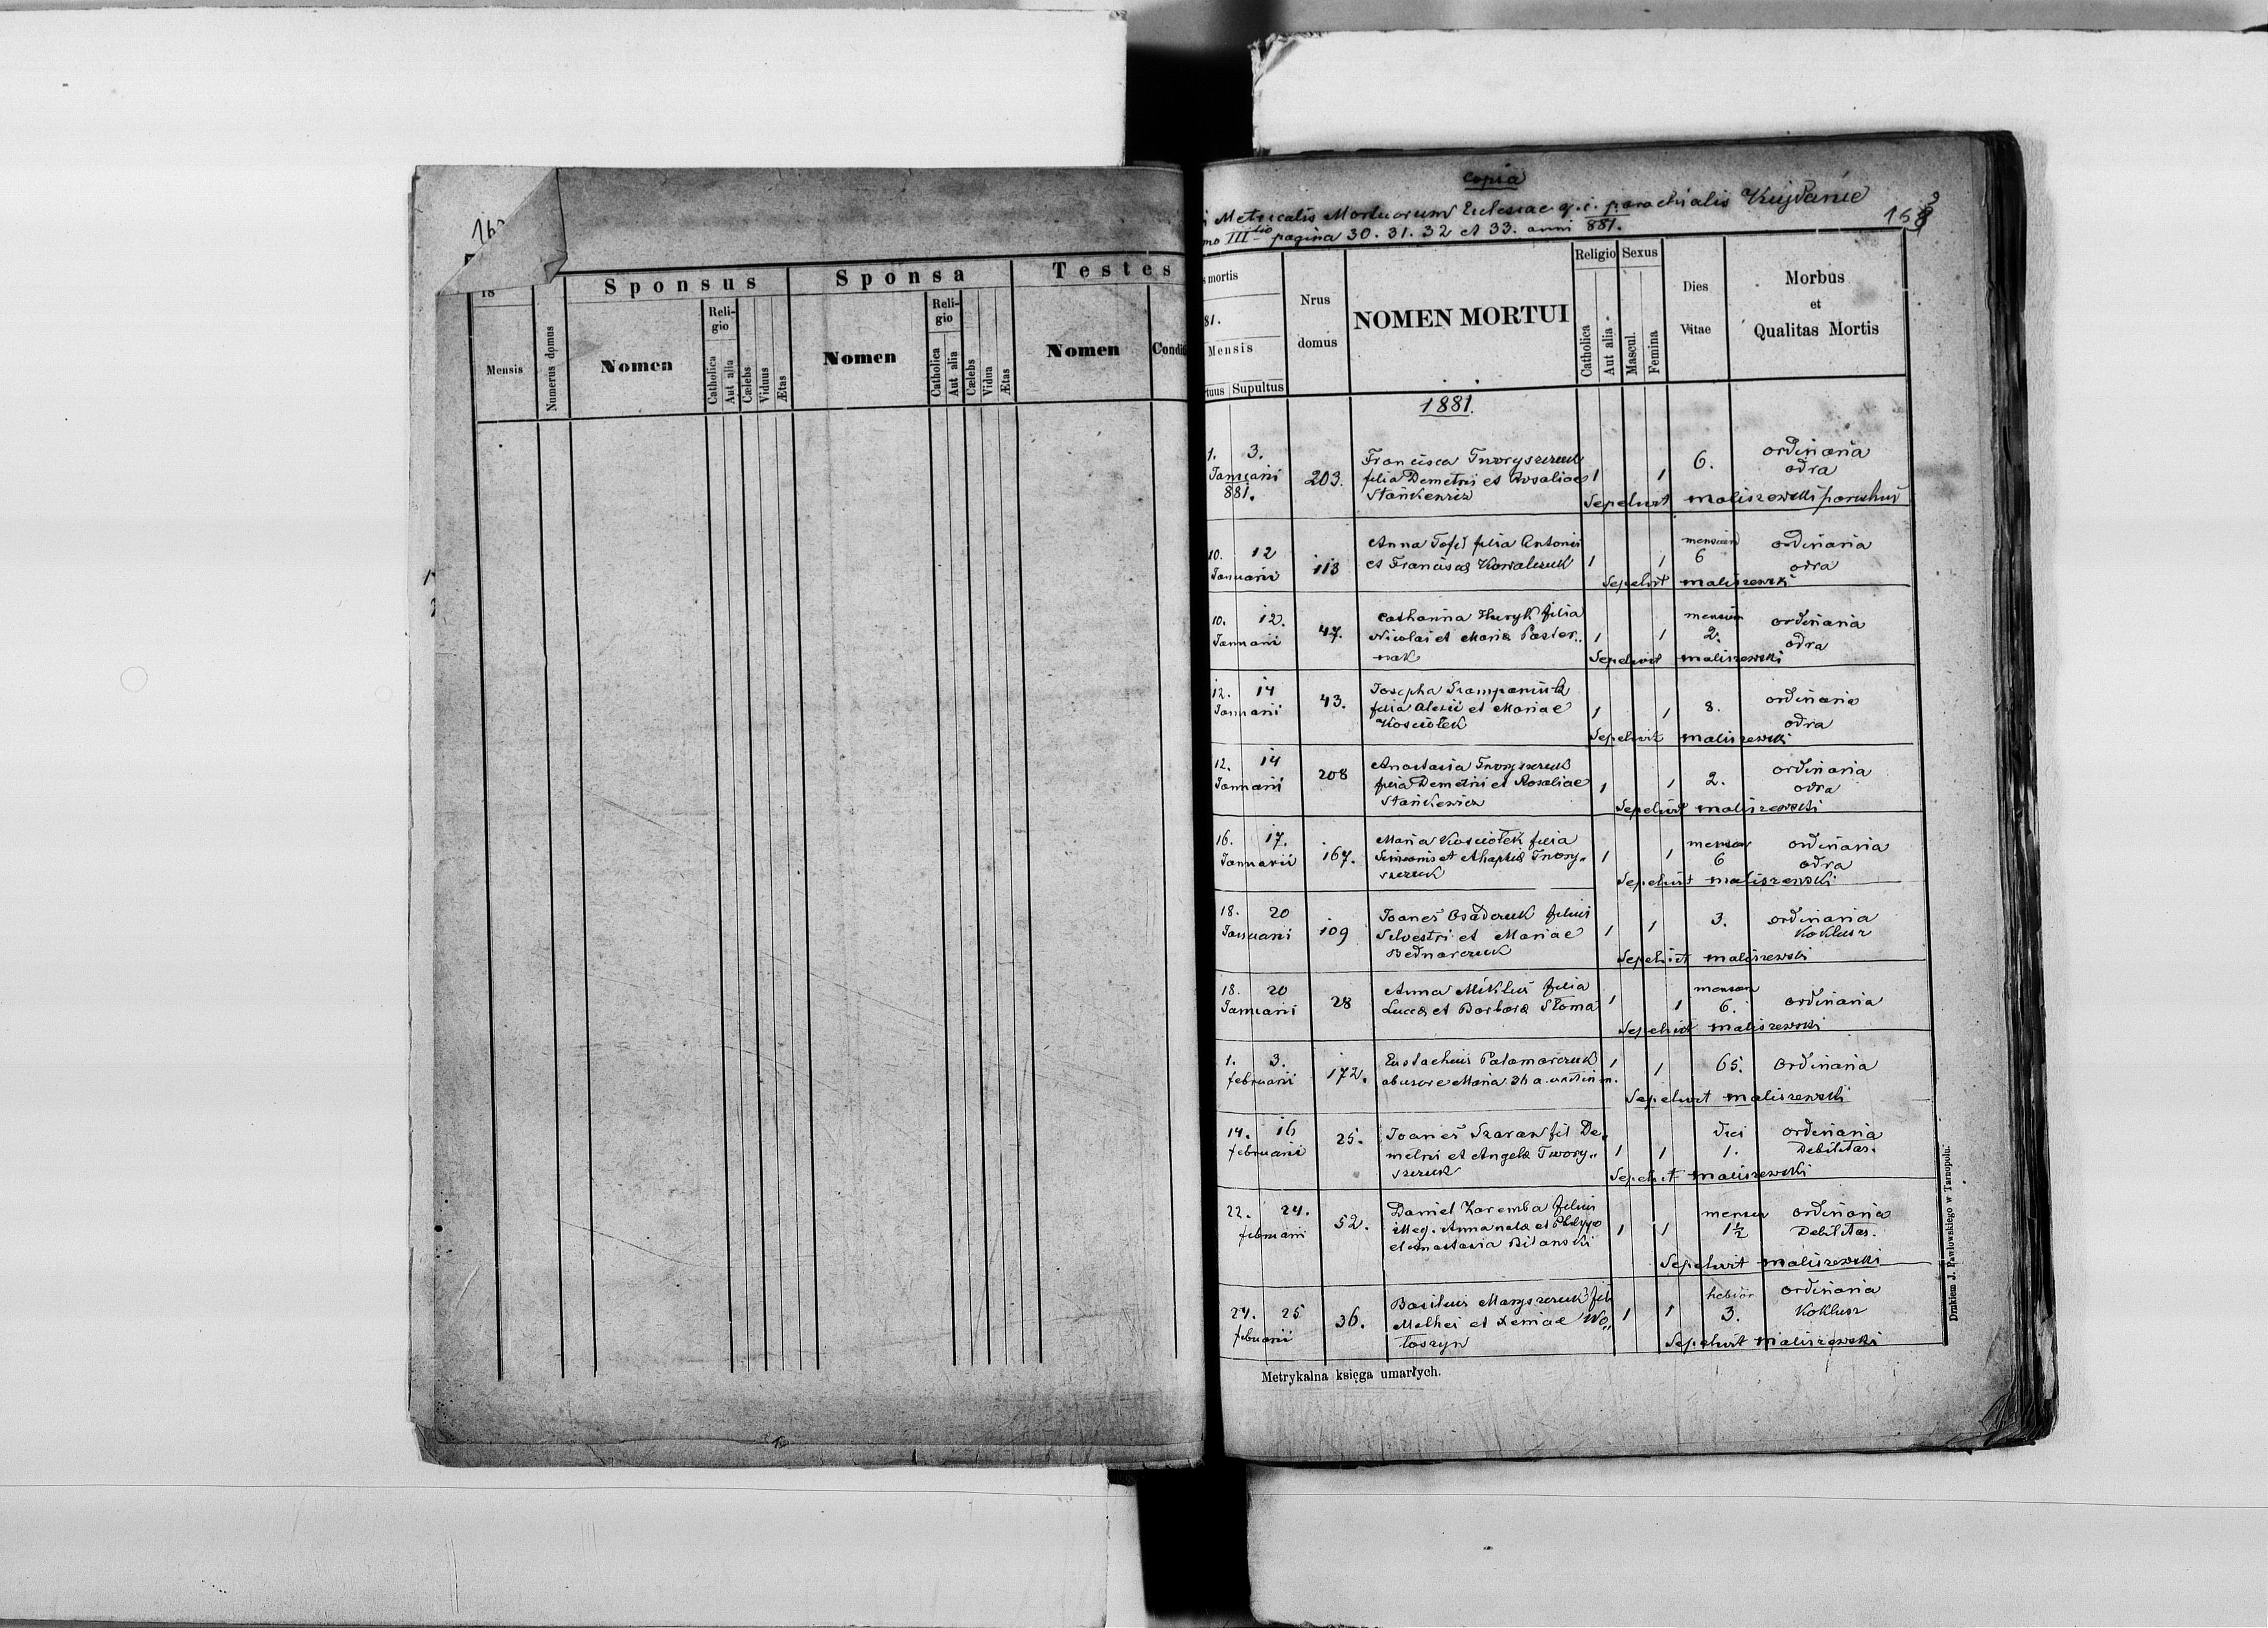 163
18
Mensis
Numerus domus
Sponsus
Nomen
Religio
Catholica
Aut alia
Cælebs
Viduus
Ætas
Sponsa
Nomen
Religio
Catholica
Aut alia
Cælebs
Vidua
Ætas
Testes
Nomen
Condit
Copia
Metricalis Mortuorum Eclesiae g. c. parochialis Kujdanie
mo III tio pagina 30. 31. 32 et 33. anni 881.
s mortis
81.
Mensis
tuus Supultus
Nrus
domus
NOMEN MORTUI
Religio
Catholica
Aut alia
Sexus
Mascul.
Femina
Dies
Vitae
Morbus
et
Qualitas Mortis
1881.
1. 3.
Januarii
881.
203.
Francisca Tworyszczuk
filia Demetrii et Rosaliae
Stańkewicz
1 1
6.
ordinaria
odra
Sepelivit Maliszewski parochus
10. 12
Januarii
113
Anna Tofil filia Antonii
et Francisca Kowalczuk
1 1
mensium
6
ordinaria
odra
Sepelivit Maliszewski
10. 12.
Januarii
47.
Catharina Huryk filia
Nicolai et Maria Paster„
nak
1 1
mensium
2.
ordinaria
odra
Sepelivit Maliszewski
12. 14
Januarii
43.
Josepha
filia Alexii et Mariae
Kościołek
1 1
8.
ordinaria
odra
Sepelivit Maliszewski
12. 14
Januarii
208
Anastasia Tworyszczuk
filia Demetrii et Rosaliae
Stańkewicz
1 1
2.
ordinaria
odra
Sepelivit Maliszewski
16. 17.
Januarii
167.
Maria Kościołek filia
Simeonis et Ahaphia Twory„
szczuk
1 1
mensium
6
ordinaria
odra
Sepelivit Maliszewski
18. 20
Januarii
109
Joanes Osadczuk filius
Silvestri et Mariae
Bednarczuk
1 1
3.
ordinaria
Koklusz
Sepelivit Maliszewski
18. 20
Januarii
28
Anna Miklus filia
Luca et Barbara Słoma
1 1
mensium
6.
ordinaria
Sepelivit Maliszewski
1. 3.
februarii
172.
Eustachius Palamarczuk
ab uxore Maria
1 1
65.
Ordinaria
Sepelivit Maliszewski
14. 16
februarii
25.
Joanes Szaran fil De„
metrii et Angela Twory„
szczuk
1 1
diei
1.
ordinaria
Debilitas.
Sepelivit Maliszewski
22. 24.
februarii
52.
Daniel Zaremba filius
illeg. Anna nata et Philippo
et Anastasia Bilanski
1 1
mensis
1½
ordinaria
Debilitas.
Sepelivit Maliszewski
24. 25
februarii
36.
Basilius Maryszczuk fil
Mathei et Xeniae Wo„
łoszyn
1 1
3.
ordinaria
Koklusz
Sepelivit Maliszewski
Metrykalna księga umarłych.
Drukiem J. Pawłowskiego w Tarnopolu.